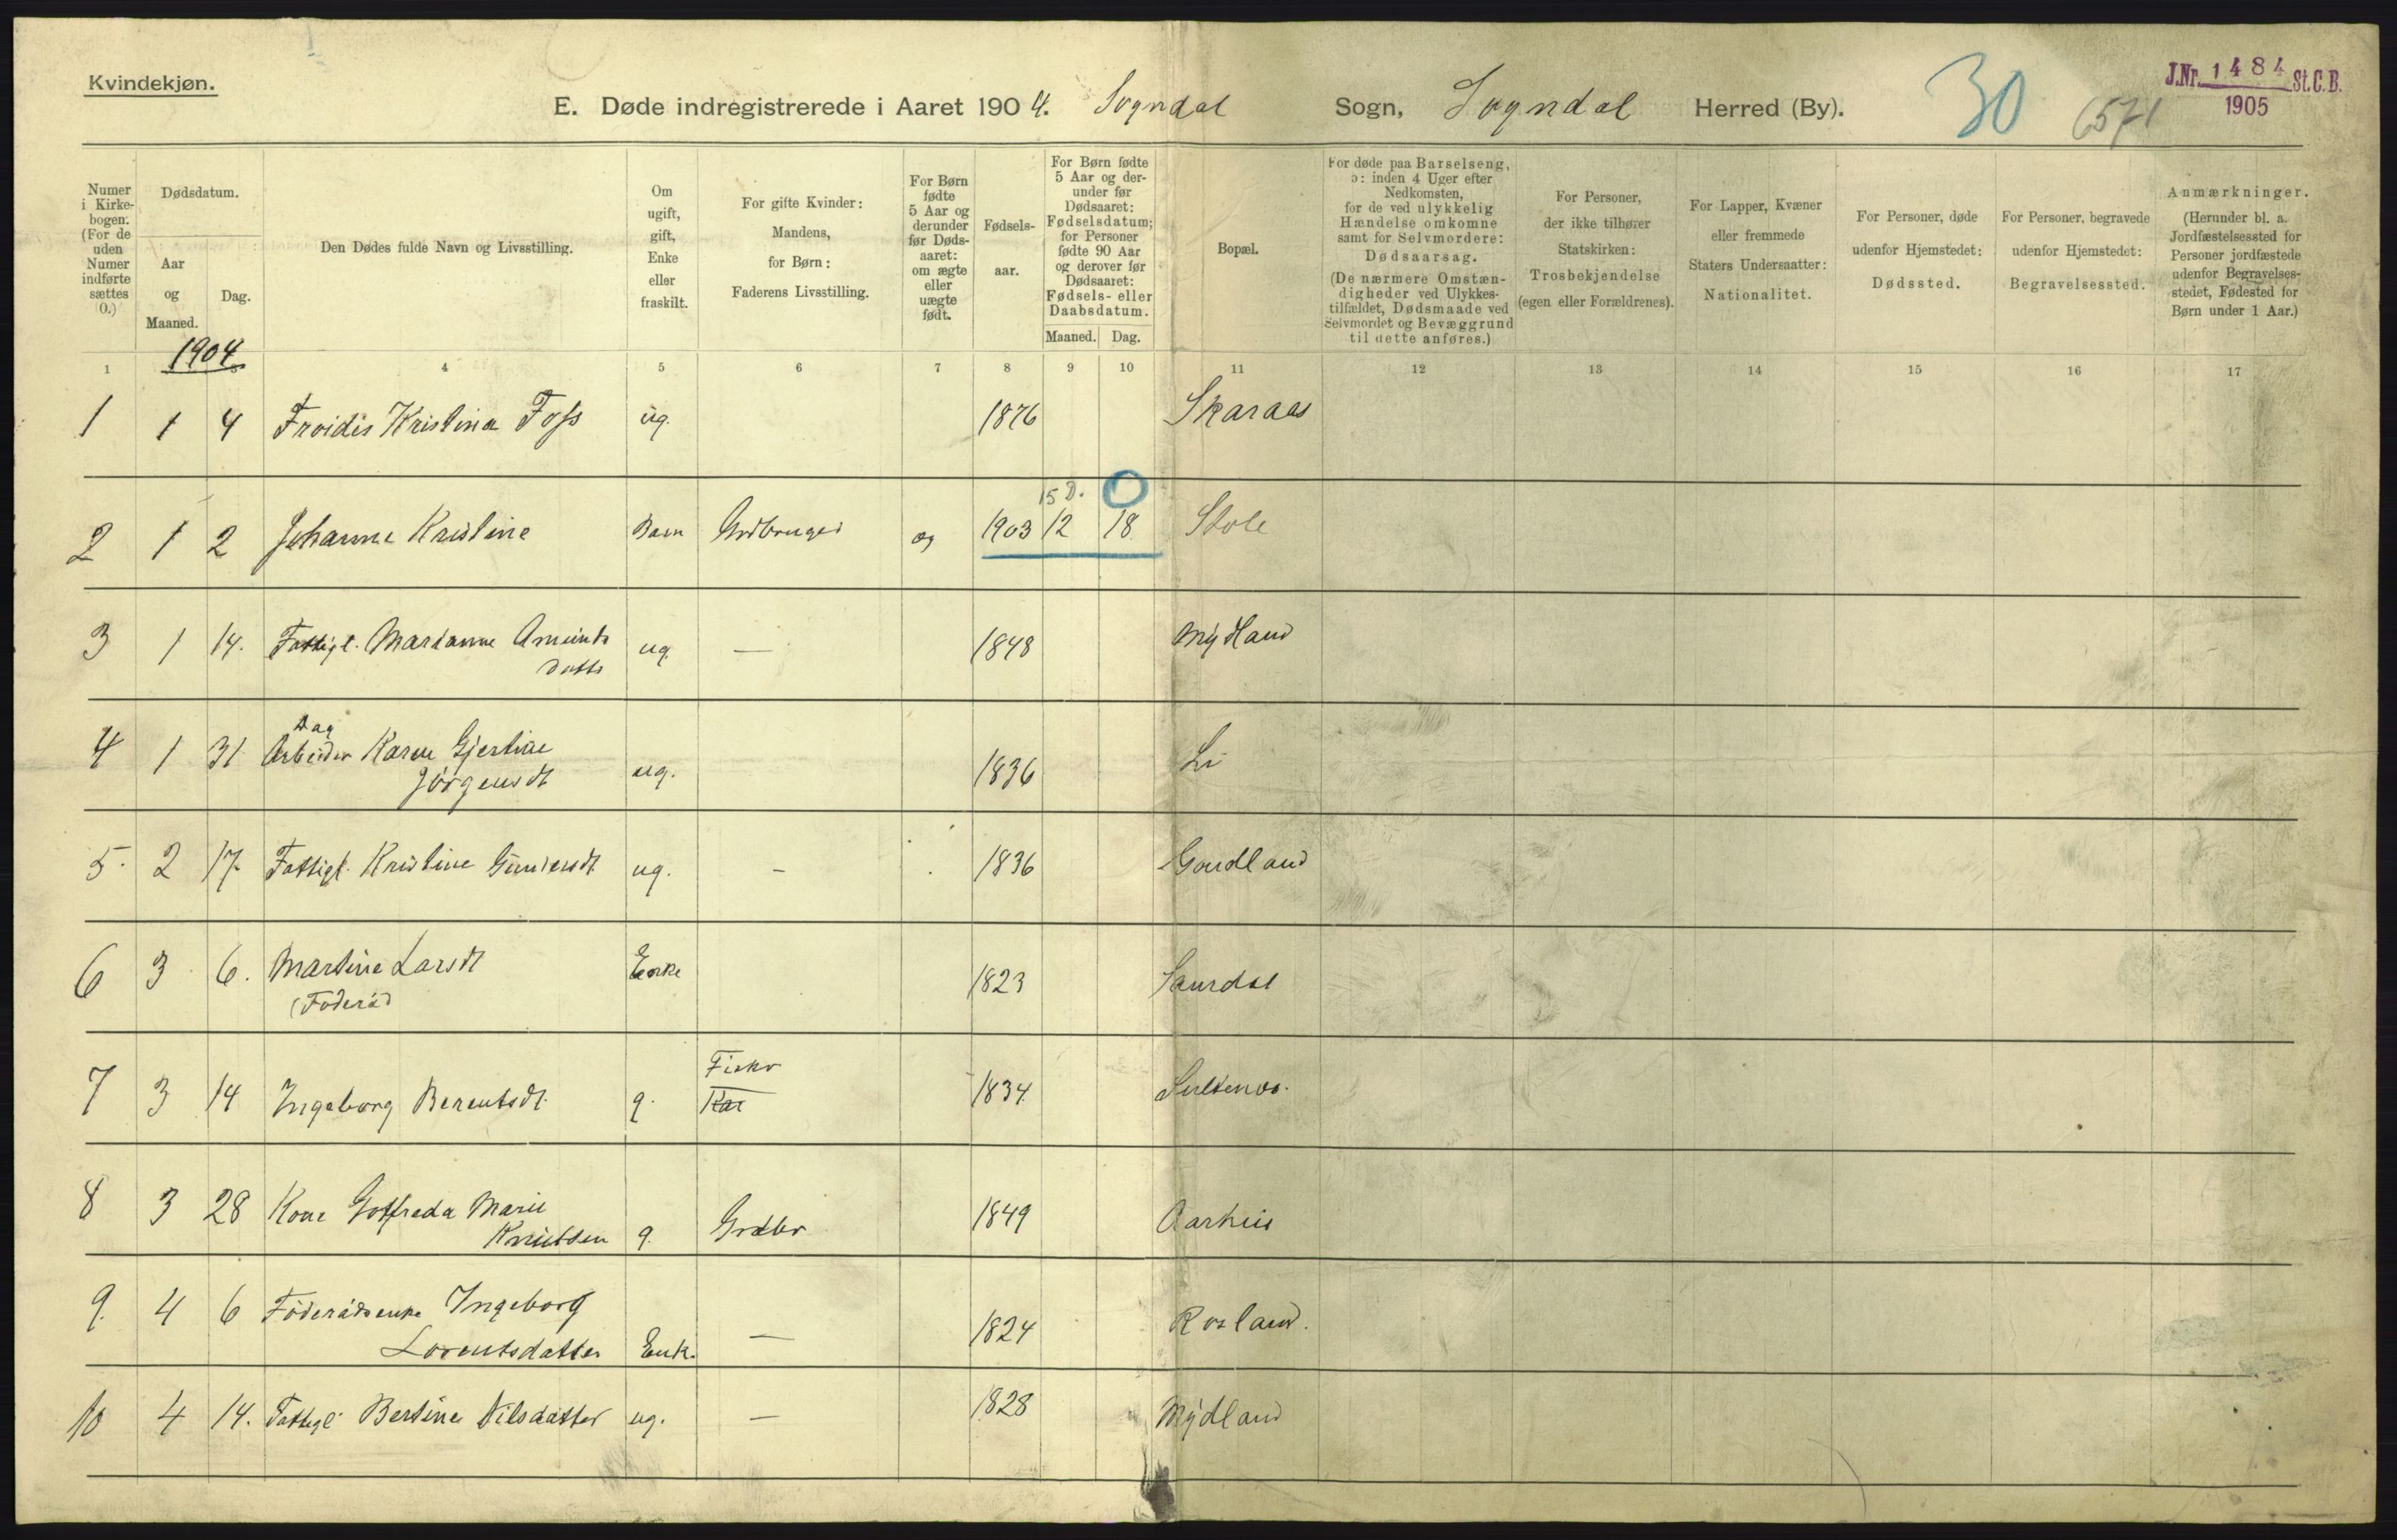 Kvindekjøn.
E. Døde indregistrerede i Aaret 1904. Sogndal Sogn, Sogndal Herred (By).
30
6571
J.Nr. 1484 St.C.B.
1905
Numer i Kirkebogen. (For de uden Numer indførte sættes 0.)
Dødsdatum.
Aar og Maaned.
Dag.
Den Dødes fulde Navn og Livsstilling.
Om ugift, gift, Enke eller fraskilt.
For gifte Kvinder: Mandens, for Børn: Faderens Livsstilling.
For Børn fødte 5 Aar og derunder før Dødsaaret: om ægte eller uægte født.
Fødselsaar.
For Børn fødte 5 Aar og derunder før Dødsaaret: Fødselsdatum; for Personer fødte 90 Aar og derover før Dødsaaret: Fødsels- eller Daabsdatum.
Maaned. Dag.
Bopæl.
For døde paa Barselseng, ɔ: inden 4 Uger efter Nedkomsten, for de ved ulykkelig Hændelse omkomne samt for Selvmordere: Dødsaarsag. (De nærmere Omstændigheder ved Ulykkestilfældet, Dødsmaade ved Selvmordet og Bevæggrund til dette anføres.)
For Personer, der ikke tilhører Statskirken: Trosbekjendelse (egen eller Forældrenes).
For Lapper, Kvæner eller fremmede Staters Undersaatter: Nationalitet.
For Personer, døde udenfor Hjemstedet: Dødssted.
For Personer, begravede udenfor Hjemstedet: Begravelsessted.
Anmærkninger. (Herunder bl. a. Jordfæstelsessted for Personer jordfæstede udenfor Begravelsesstedet, Fødested for Børn under 1 Aar.)
1904
1 3 4 5 6 7 8 9 10 11 12 13 14 15 16 17
1 1 4 Froidis Kristina Foss ug. 1876 Skaraas
15 D. 0
2 1 2 Johanne Kristine Barn Grdbruger æg 1903 12 18 Stole
3 1 14. Fattigl. Marianne Amunds ug. — 1848 Mydland
datte
Dag
4 1 31 Arbeider Karen Gjertine ug. 1836 Li
Jörgensdt
5. 2 17. Fattigl. Kristine Gundersdt ug. - 1836 Goudland
6 3 6. Martine Larsdt Enke 1823 Saurdal
(Föderåd
Fiskr
7 3 14 Ingeborg Berentsdt. g. Kar 1834
8 3 28 Kone Gotfreda Marie 1849 Aarhus
Knutsen g. Grdbr
9. 4 6 Föderådsenke Ingeborg — 1824 Rosland.
Lorentsdatter Enk.
10 4 14. Fattigl Bertine Nilsdatter ug. — 1828 Mydland